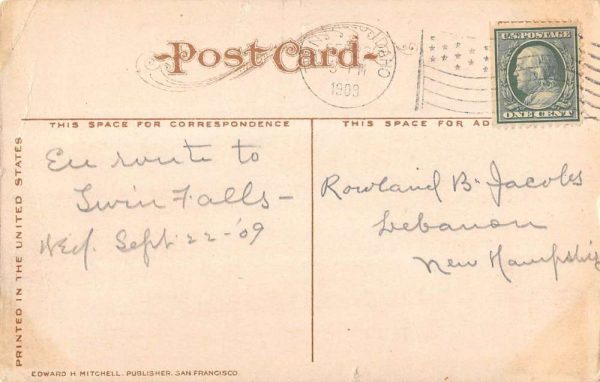 Post Card
IDAHO
PM
1909
U.S. POSTAGE
ONE CENT
THIS SPACE FOR CORRESPONDENCE
THIS SPACE FOR AD
PRINTED IN THE UNITED STATES
En route to
Twin Falls -
Wed. Sept. 22 - '09
Rowland B. Jacobs
Lebanon
New Hampshire
EDWARD H. MITCHELL, PUBLISHER, SAN FRANCISCO